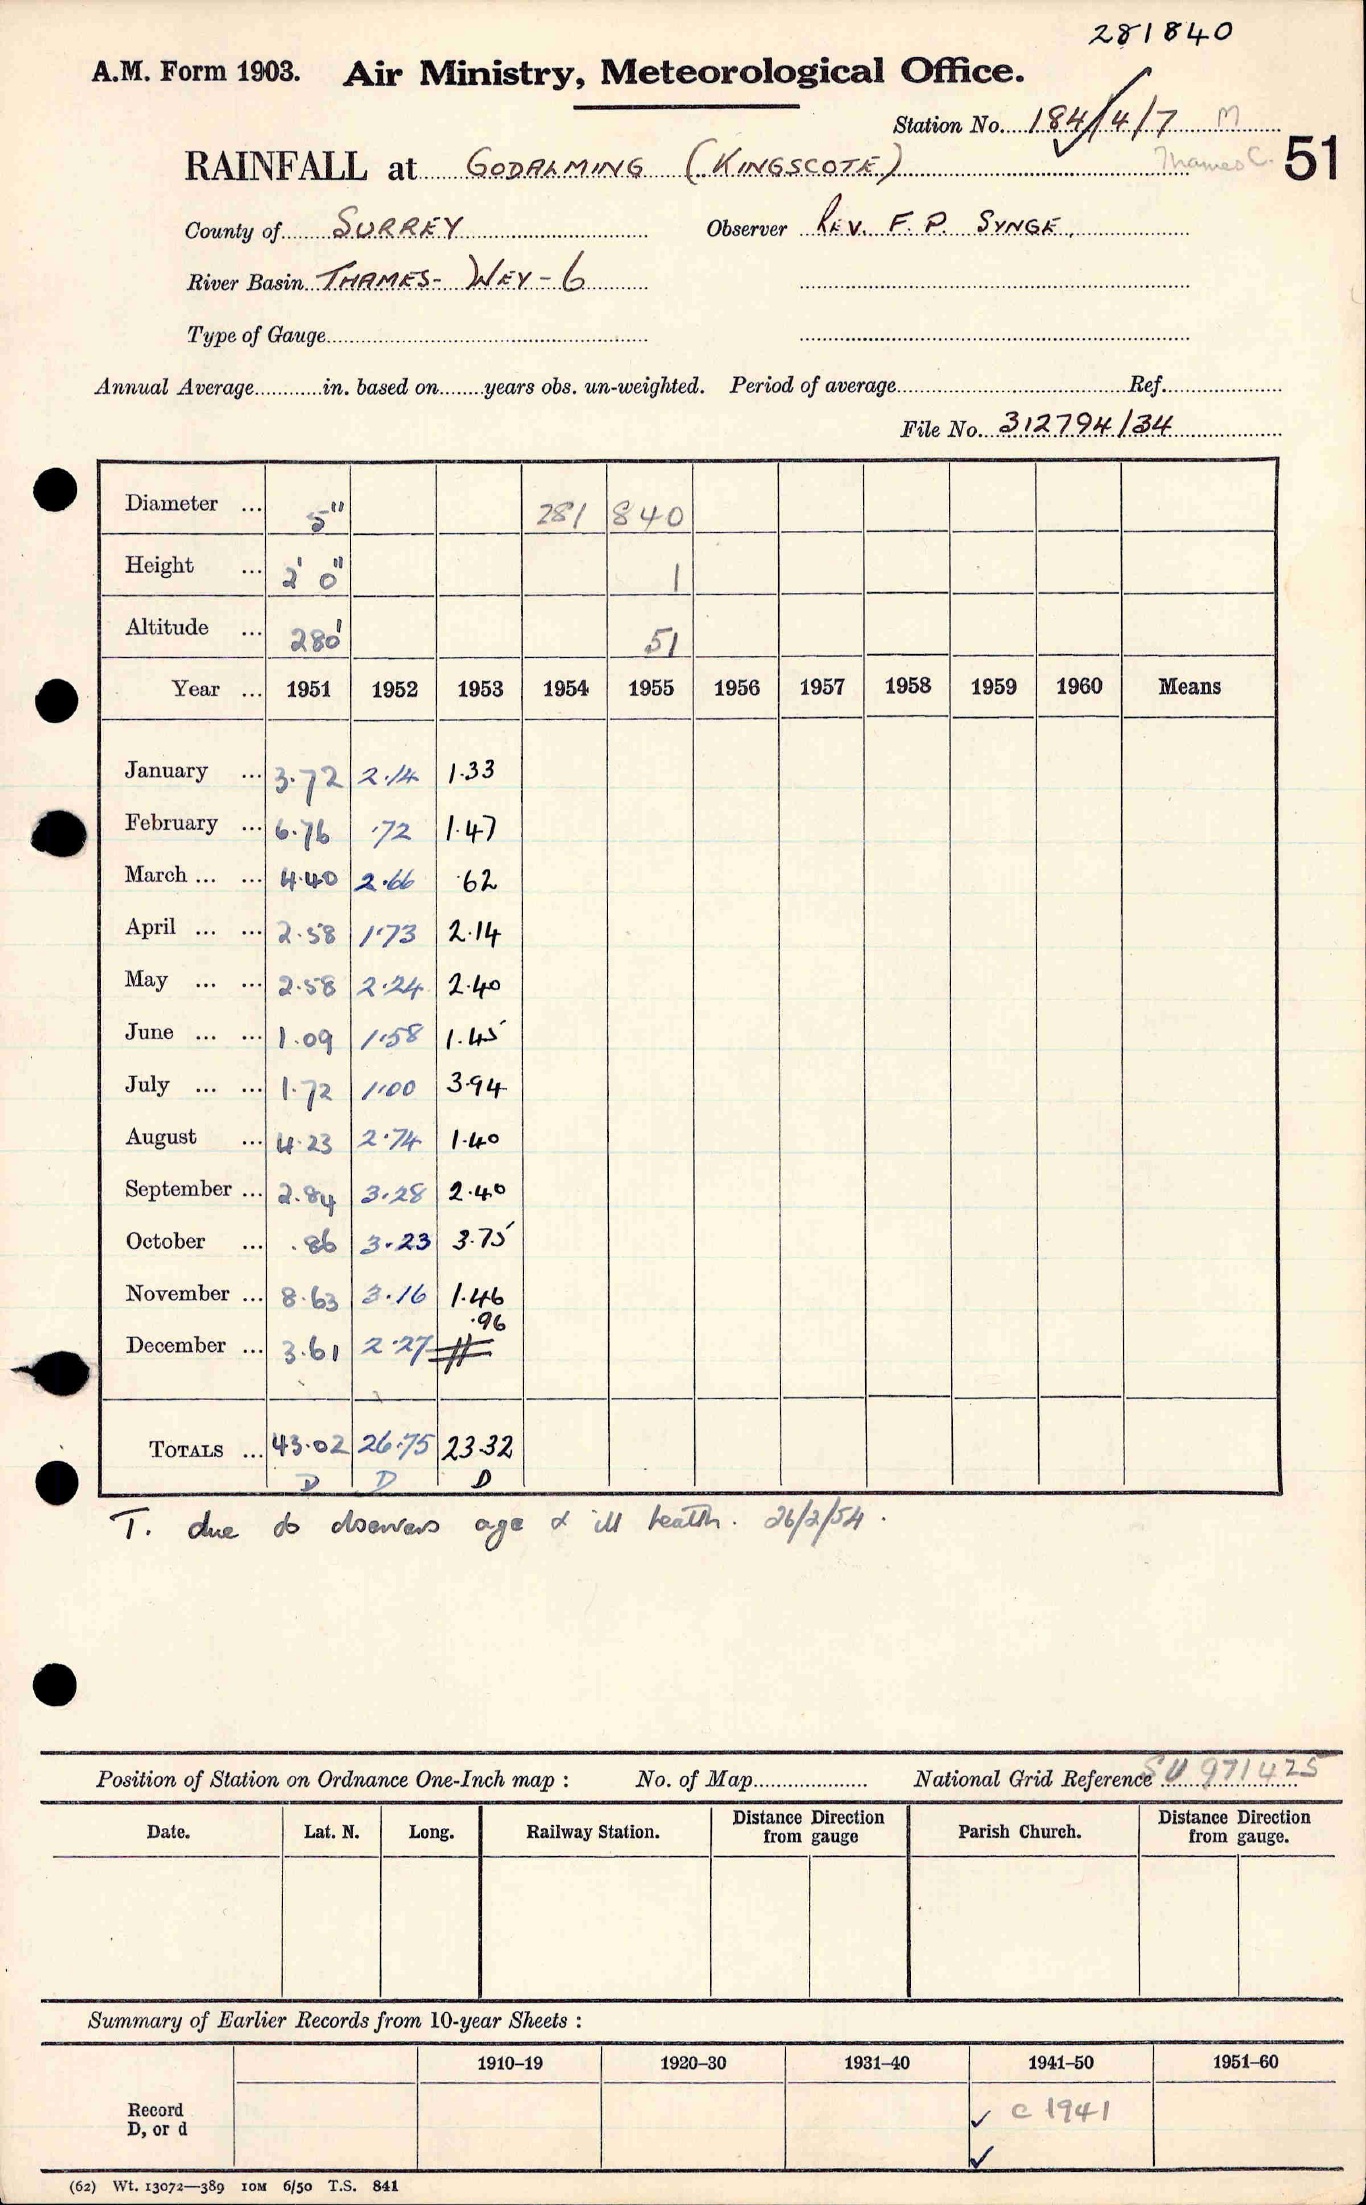 281840
A.M. Form 1903. Air Ministry, Meteorological Office.
Station No. 184/4/7 M
RAINFALL at GODALMING (KINGSCOTE) Thames C. 51
County of SURREY Observer REV. F. P. SYNGE.
River Basin THAMES- WEY-6
Type of Gauge
Annual Average in. based on years obs. un-weighted. Period of average Ref.
File No. 312794/34
Diameter ... 5" 281 840
Height ... 2' 0" 1
Altitude ... 280' 51
Year ... 1951 1952 1953 1954 1955 1956 1957 1958 1959 1960 Means
January ... 3.72 2.14 1.33
February ... 6.76 .72 1.47
March ... ... 4.40 2.66 .62
April ... ... 2.58 1.73 2.14
May ... ... 2.58 2.24 2.40
June ... ... 1.09 1.58 1.45
July ... ... 1.72 1.00 3.94
August ... 4.23 2.74 1.40
September ... 2.84 3.28 2.40
October ... .86 3.23 3.75
November ... 8.63 3.16 1.46
December ... 3.61 2.27 .96
TOTALS ... 43.02 26.75 23.32
D D D
T. due to observers age & ill health. 26/2/54.
Position of Station on Ordnance One-Inch map : No. of Map National Grid Reference SU 971425
Date. Lat. N. Long. Railway Station. Distance from gauge Direction Parish Church. Distance from gauge. Direction
Summary of Earlier Records from 10-year Sheets :
1910–19 1920–30 1931–40 1941–50 1951–60
Record D, or d c 1941
(62) Wt. 13072—389 10M 6/50 T.S. 841